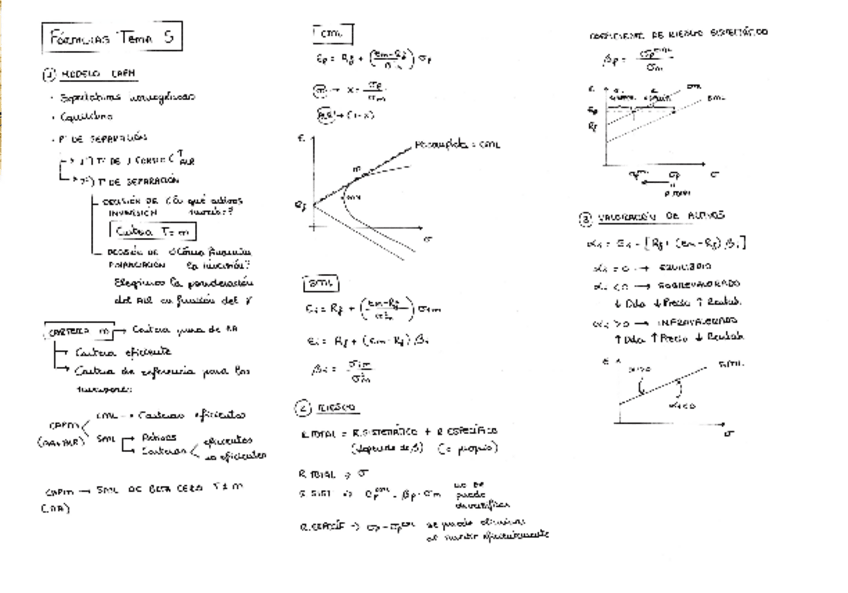 FÓRMULAS TEMA 5
① MODELO CAPM
· Expectativas homogéneas
· Equilibrio
· Pº DE SEPARACIÓN
DECISIÓN DE INVERSIÓN
¿En qué activos
Cartera T = m
DECISIÓN DE FINANCIACIÓN
¿Cómo financiar la inversión?
Elegimos la ponderación
del ALR en función del γ
CARTERA m → Cartera pura de RA
→ Cartera eficiente
→ Cartera de referencia para los
inversores
CAPM
(RA+ALR)
CML → Carteras eficientes
SML → Activos
→ Carteras
eficientes
no eficientes
CAPM → SML DE BETA CERO
CML
Ep = Rf + (Em-Rf / σm) σp
m → x = σp / σm
ALR → (1-x)
E
Rf
m
σ
SML
Ei = Rf + (Em-Rf / σ²m) σim
Ei = Rf + (Em-Rf) βi
βi = σim / σ²m
② RIESGO
R.TOTAL = R.SISTEMÁTICO + R.ESPECÍFICO
(depende de β) (es propio)
R.TOTAL → σ
R.SIST → σp = βp · σm
no se
puede
diversificar
R.ESPECÍF → σp -
se puede eliminar
al invertir eficientemente
COEFICIENTE DE RIESGO SISTEMÁTICO
βp = / σm
E
Ep
Rf
CML
SML
σp
σ
③ VALORACIÓN DE ACTIVOS
αi = Ei - [Rf + (Em-Rf) βi]
αi = 0 → EQUILIBRIO
αi < 0 → SOBREVALORADO
↓ Dda ↓ Precio ↑ Rentab.
αi > 0 → INFRAVALORADO
↑ Dda ↑ Precio ↓ Rentab.
E
α>0
SML
α<0
σ